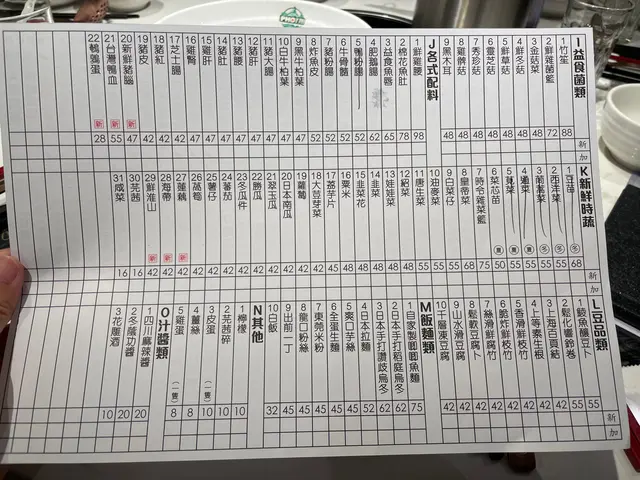 I 益食菌類 新加
1 竹笙 88
2 鮮雜菌籃 72
3 金菇菜 48
4 鮮冬菇 48
5 鮮草菇 48
6 靈芝菇 48
7 秀珍菇 48
8 雞髀菇 48
9 黑木耳 48
J 各式配料
1 鮮雞腰 98
2 棉花魚肚 78
3 益食魚唇 65
4 肥鵝腸 62
5 鴨粉腸 52
6 牛骨髓 52
7 豬粉腸 52
8 炸魚皮 52
9 黑牛柏葉 47
10 白牛柏葉 47
11 豬大腸 47
12 豬肝 47
13 豬腰 47
14 豬肚 47
15 雞肝 47
16 雞腎 42
17 芝士腸 42
18 豬紅 42
19 豬皮 42
20 新鮮豬腦 新 47
21 台灣鴨血 新 55
22 鵪鶉蛋 新 28
K 新鮮時蔬 新加
1 豆苗 冬 68
2 西洋菜 冬 55
3 茼蒿菜 冬 55
4 通菜 夏 55
5 莧菜 夏 55
6 菜芯苗 夏 50
7 時令雜菜籃 75
8 皇帝菜
9 白菜仔
10 油麥菜
11 唐生菜
12 紹菜 48
13 娃娃菜 48
14 韭菜 48
15 韭菜花 48
16 粟米
17 荔芋片
18 大荳芽菜
19 蘿蔔 42
20 日本南瓜 42
21 翠玉瓜 42
22 勝瓜 42
23 冬瓜件 42
24 蕃茄 42
25 薯仔 42
26 萵筍 42
27 蓮藕 新 42
28 海帶 新 42
29 鮮淮山 新 42
30 芫茜 16
31 咸菜 16
L 豆品類 新加
1 鯪魚釀豆卜 55
2 鬆化響鈴卷 55
3 上海百頁結 42
4 上等素生根 42
5 香滑鮮枝竹 42
6 脆炸鮮枝竹 42
7 絲滑鮮腐竹 42
8 鬆軟豆腐卜 42
9 山水滑豆腐 42
10 千層凍豆腐 42
M 飯麵類
1 自家製唧唧魚麵 75
2 日本手打稻庭烏冬 62
3 日本手打讚歧烏冬 62
4 日本拉麵 52
5 爽口芋絲 45
6 全蛋生麵 45
7 東莞米粉 45
8 龍口粉絲 45
9 出前一丁 45
10 白飯 32
N 其他
1 檸檬 10
2 芫茜碎 10
3 皮蛋 (一隻) 10
4 薑絲 8
5 雞蛋 (一隻) 8
O 汁醬類
1 四川麻辣醬 20
2 冬蔭功醬 20
3 花雕酒 10